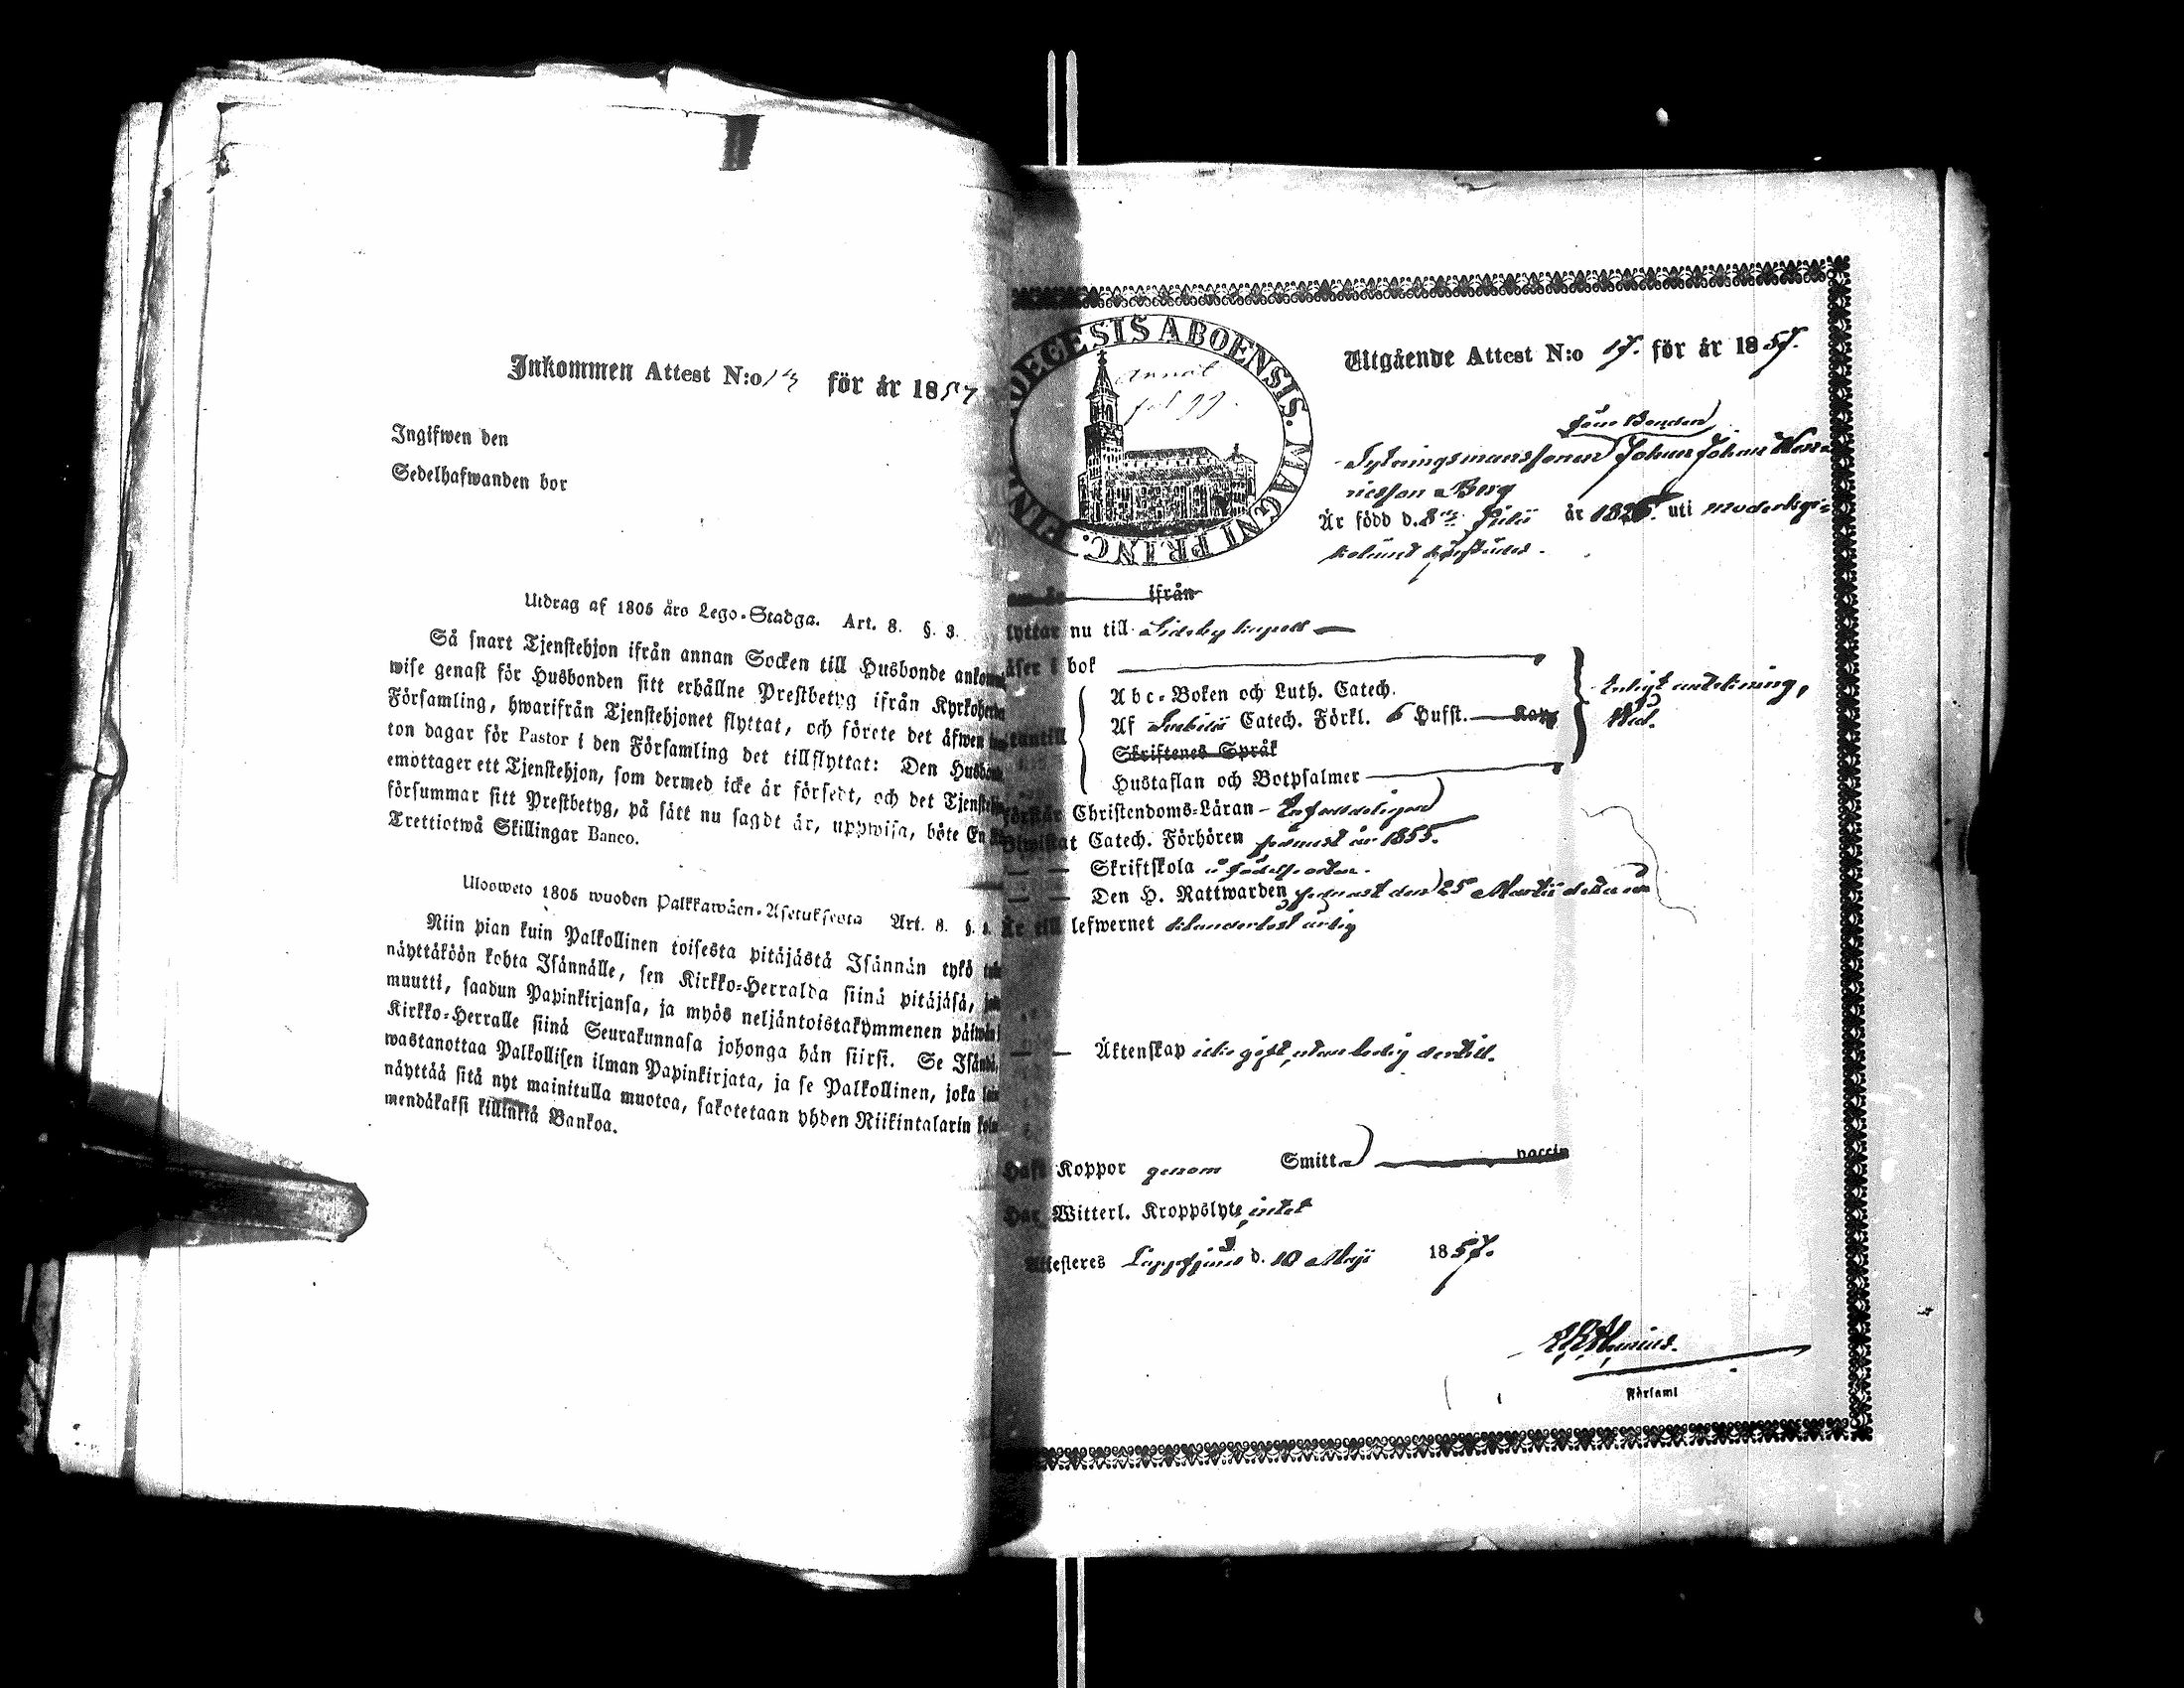 Inkommen Attest N:o 13 för år 1857
Ingifwen den
Sedelhafwanden bor
Utdrag af 1805 års Lego-Stadga. Art. 8. §. 3.
Så snart Tjenstehjon ifrån annan Socken till Husbonde
wise genast för Husbonden sitt erhållne Prestbetyg ifrån
Församling, hwarifrån Tjenstehjonet flyttat, och förete det äfwen
ton dagar för Pastor i den Församling det tillflyttat: Den
emottager ett Tjenstehjon, som dermed icke är försedt, och det
försummar sitt Prestbetyg, på sätt nu sagdt är, uppwisa, böte En
Trettiotwå Skillingar Banco.
Ulosweto 1805 wuoden Palkkawäen-Asetuksesta Art. 8. §.
Niin pian kuin Palkollinen toisesta pitäjästä Isännän tykö
näyttäköön kohta Isännälle, sen Kirkko-Herralda siinä pitäjäsä,
muutti, saadun Papinkirjansa, ja myös neljäntoistakymmenen
Kirkko-Herralle siinä Seurakunnasa johonga hän siirsi. Se
wastanottaa Palkollisen ilman Papinkirjata, ja se Palkollinen, joka
näyttää sitä nyt mainitulla muotoa, sakotetaan yhden Riikintalarin
mendäkaksi killinkiä Bankoa.
DIOECESIS ABOENSIS. MAGNI PRINC. FINL
Utgående Attest N:o 17. för år 1857.
Johan Johan
Berg
Är född d. 8 Julii år 1826. uti
ifrån
flyttar nu till
läser i bok
Abc-Boken och Luth. Catech.
Enligt anteckning,
Af Catech. Förkl. 6 Hufst. Kap
Skriftenes Språk
Hustaflan och Botpsalmer
förstår Christendoms-Läran
Biwistat Catech. Förhören senast år 1855.
— — Skriftskola å födelseorten.
— — Den H. Nattwarden senast den 25 Martii detta år
Är till lefwernet klanderlöst ärlig
— — Äktenskap icke gift, utan ledig dertill.
Haft Koppor genom Smitta vaccin
Har Witterl. Kroppslyte intet
Attesteres Lappfjärd d. 10 Maji 1857.
Församl